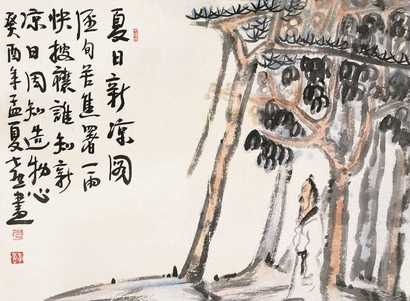 夏日新凉图
经旬苦焦暑一雨
快披襟谁知新
凉日因知造物心
癸酉年孟夏 画